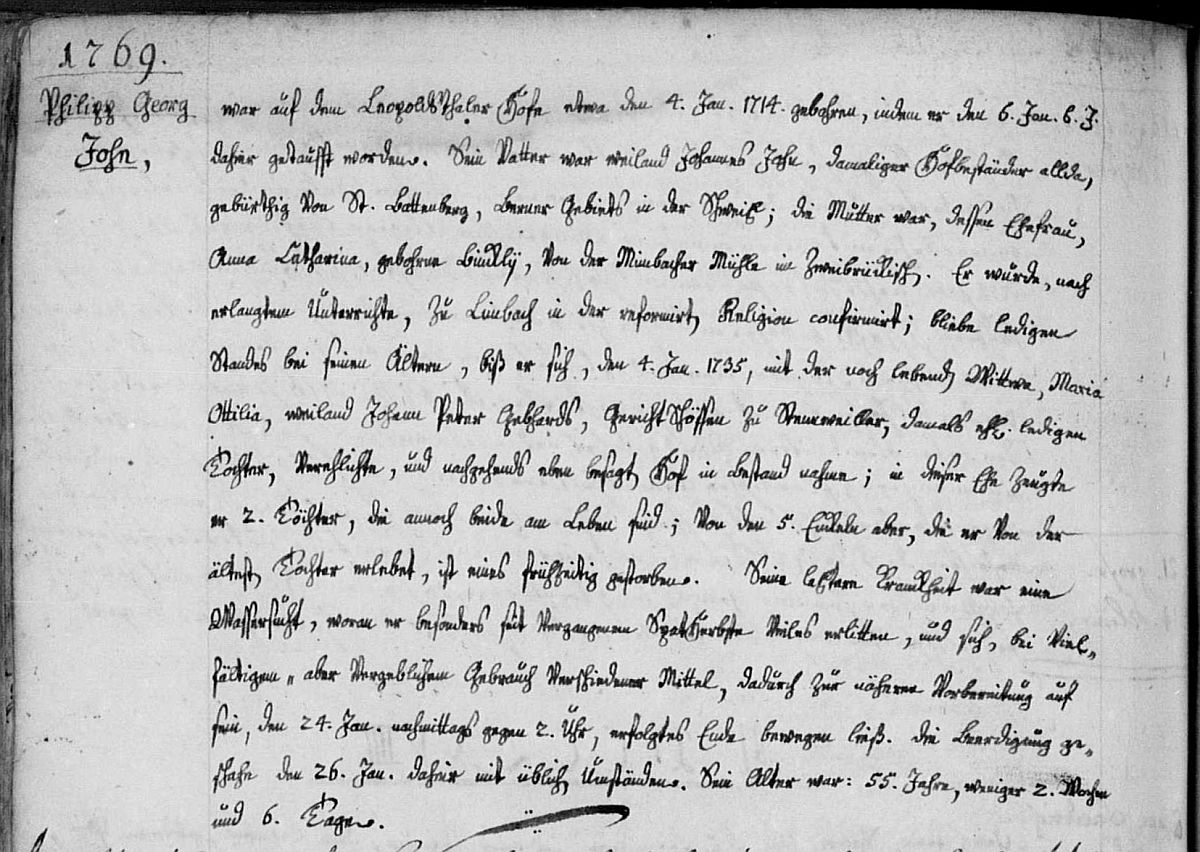 1769.
Philipp Georg
John,
war auf dem Leopoldsthaler Hofe etwa den 4. Jan. 1714. gebohren, indem er den 6. Jan. e. J.
dahier getaufft worden. Sein Vatter war weiland Johannes John, damaliger Hofbeständer allda,
gebürthig von St. Battenberg, Berner Gebiets in der Schweitz; die Mutter war, dessen Ehefrau,
Anna Catharina, gebohrne Binckly, von der Mimbacher Mühle im Zweibrückisch. Er wurde, nach
erlangtem Unterrichte, zu Limbach in der reformirt. Religion confirmirt; bliebe ledigen
Standes bei seinen Ältern, biß er sich, den 4. Jan. 1735, mit der noch lebend. Wittwe, Maria
Ottilia, weiland Johann Peter Gebhards, Gericht Schöffen zu Steinweiller, damals ehl. ledigen
Tochter, verehlichte, und nachgehends eben besagt. Hof in Bestand nahme; in dieser Ehe zeugte
er 2. Töchter, die annoch beide am Leben seind; von den 5. Enckeln aber, die er von der
ältest. Tochter erlebet, ist eines frühzeitig gestorben. Seine letztere Kranckheit war eine
Wassersucht, woran er besonders seit vergangenem Spat Herbste vieles erlitten, und sich, bei viel-
fältigem - aber vergeblichem Gebrauch verschiedener Mittel, dadurch zur näheren Vorbereitung auf
sein, den 24. Jan. nachmittags gegen 2. Uhr, erfolgtes Ende bewegen ließ. Die Beerdigung ge-
schahe den 26. Jan. dahier mit üblich. Umständen. Sein Alter war: 55. Jahre, weniger 2. Wochen
und 6. Tage.